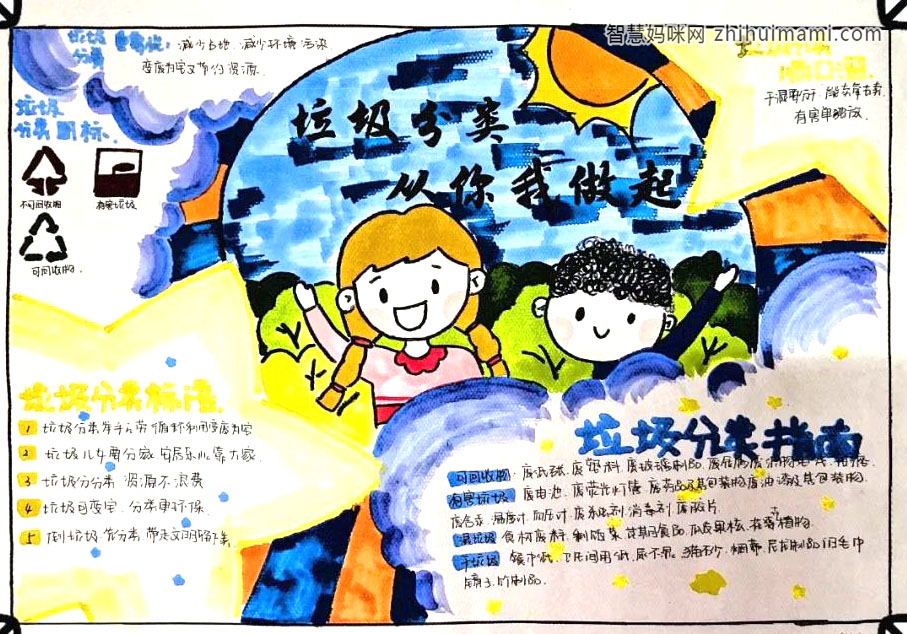 智慧妈咪网 zhihuimami.com
垃圾
分类
减少占地、减少环境污染
变废为宝又节约资源.
垃圾
分类图标.
不可回收物
有害垃圾
可回收物.
垃圾分类
从你我做起
干湿要分, 能卖拿去卖,
有害单独放.
垃圾分类标语.
1 垃圾分类举手之劳 循环利用变废为宝
2 垃圾儿
3 垃圾分分类 资源不浪费
4 垃圾可变宝, 分类更环保
5 倒垃圾 先分类 带走文明
垃圾分类指南
可回收物: 废纸张、废塑料、废玻璃制品、废金属、废织物
有害垃圾 废电池、废荧光灯管、废药品及其包装物、废油漆及其包装物、
废含汞、温度计、血压计、废杀虫剂、消毒剂、废胶片
湿垃圾 食材废料、剩饭菜、过期食品、瓜皮果核、花卉植物.
干垃圾 餐巾纸、卫生间用纸、尿不湿、猫砂、烟蒂、